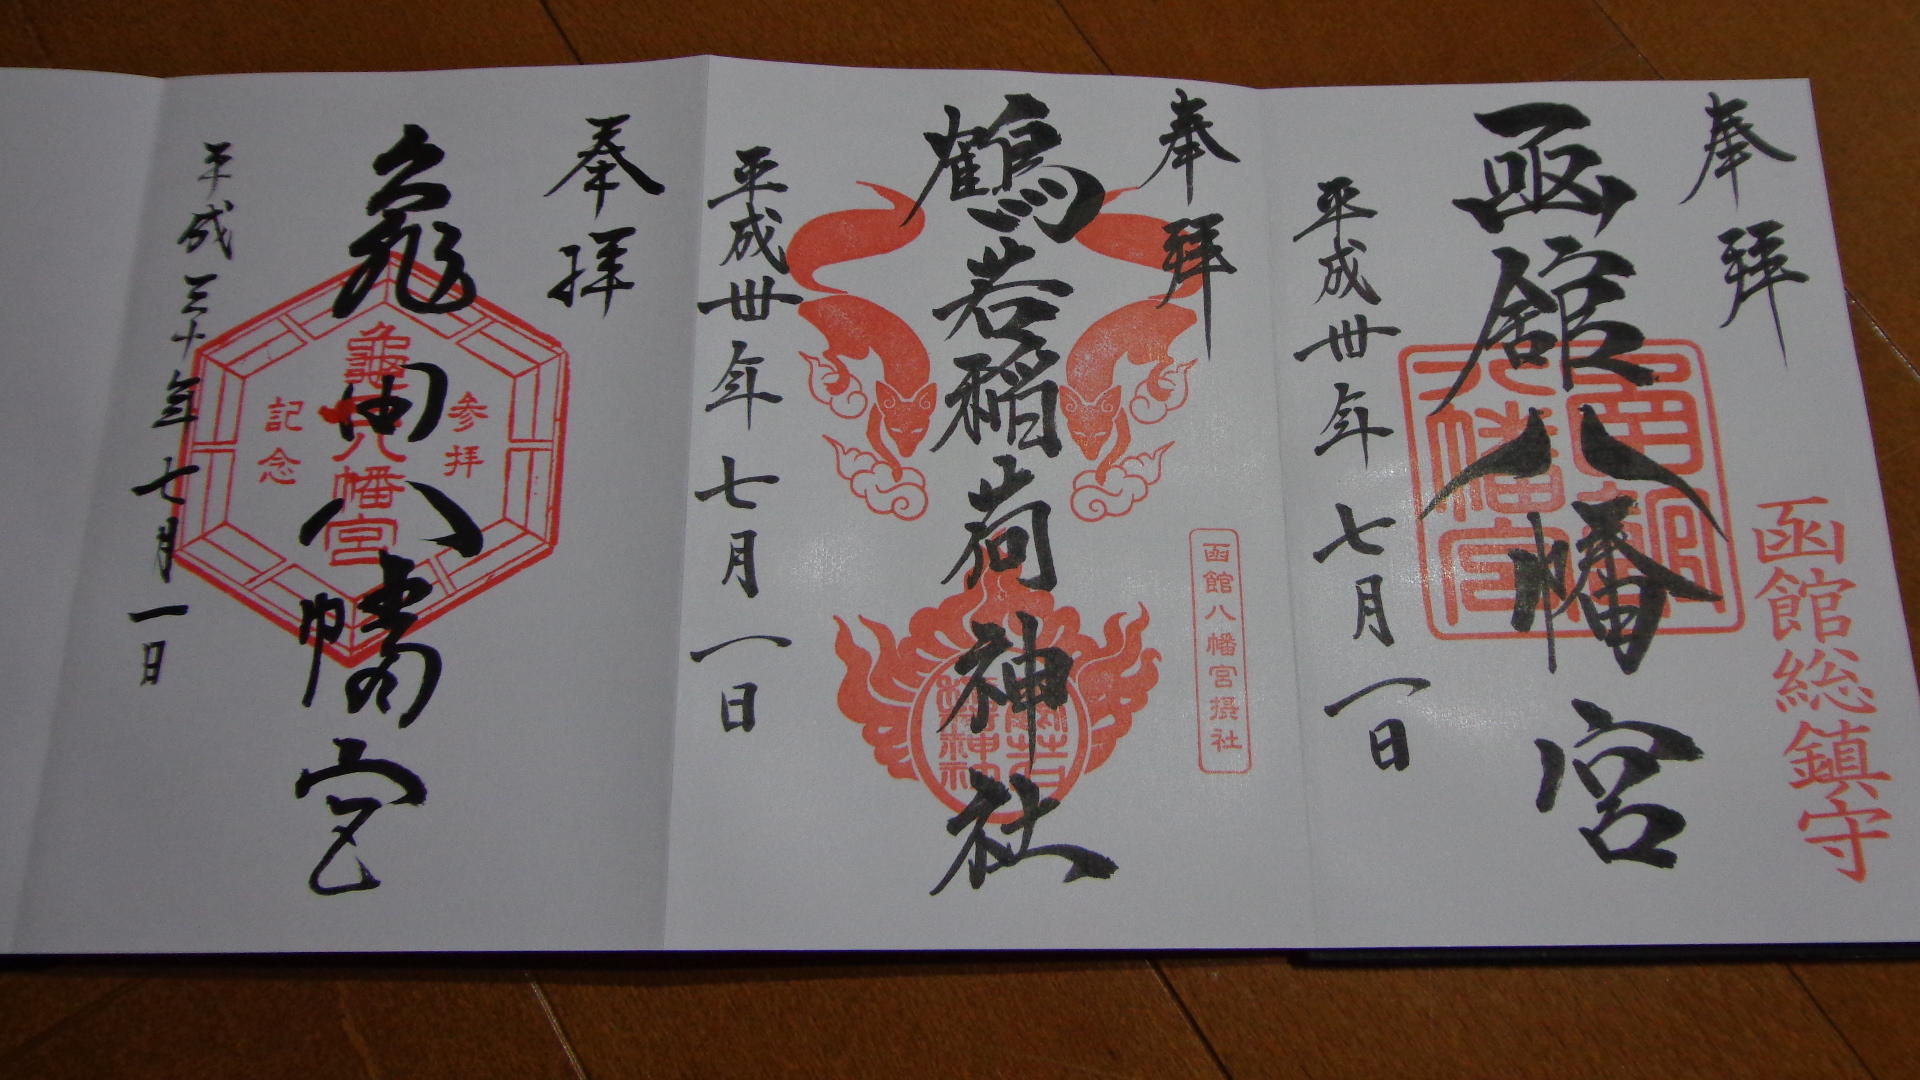 奉拝
函館八幡宮
函館総鎮守
平成卅年七月一日
奉拝
鶴若稲荷神社
函館八幡宮摂社
平成卅年七月一日
奉拝
亀田八幡宮
参拝
記念
平成三十年七月一日